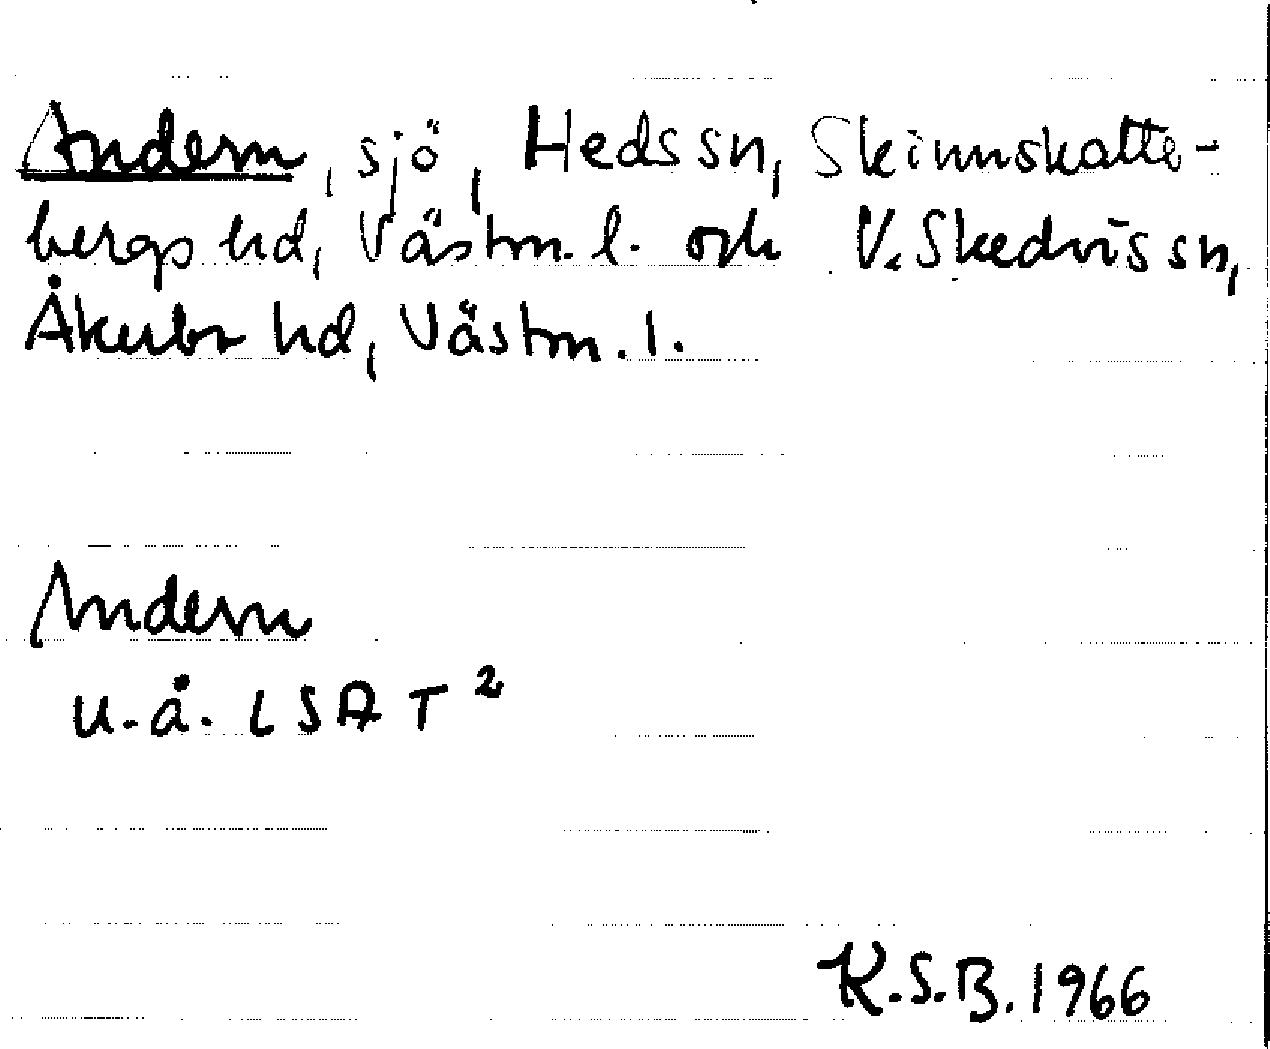 Andern, sjö, Heds sn, Skinnskatte-
bergs hd, Västm. l. och V. Skedvis sn,
Åkerbo hd, Västm. l.
Andern
u. å. LSA T 2
K.S.B. 1966